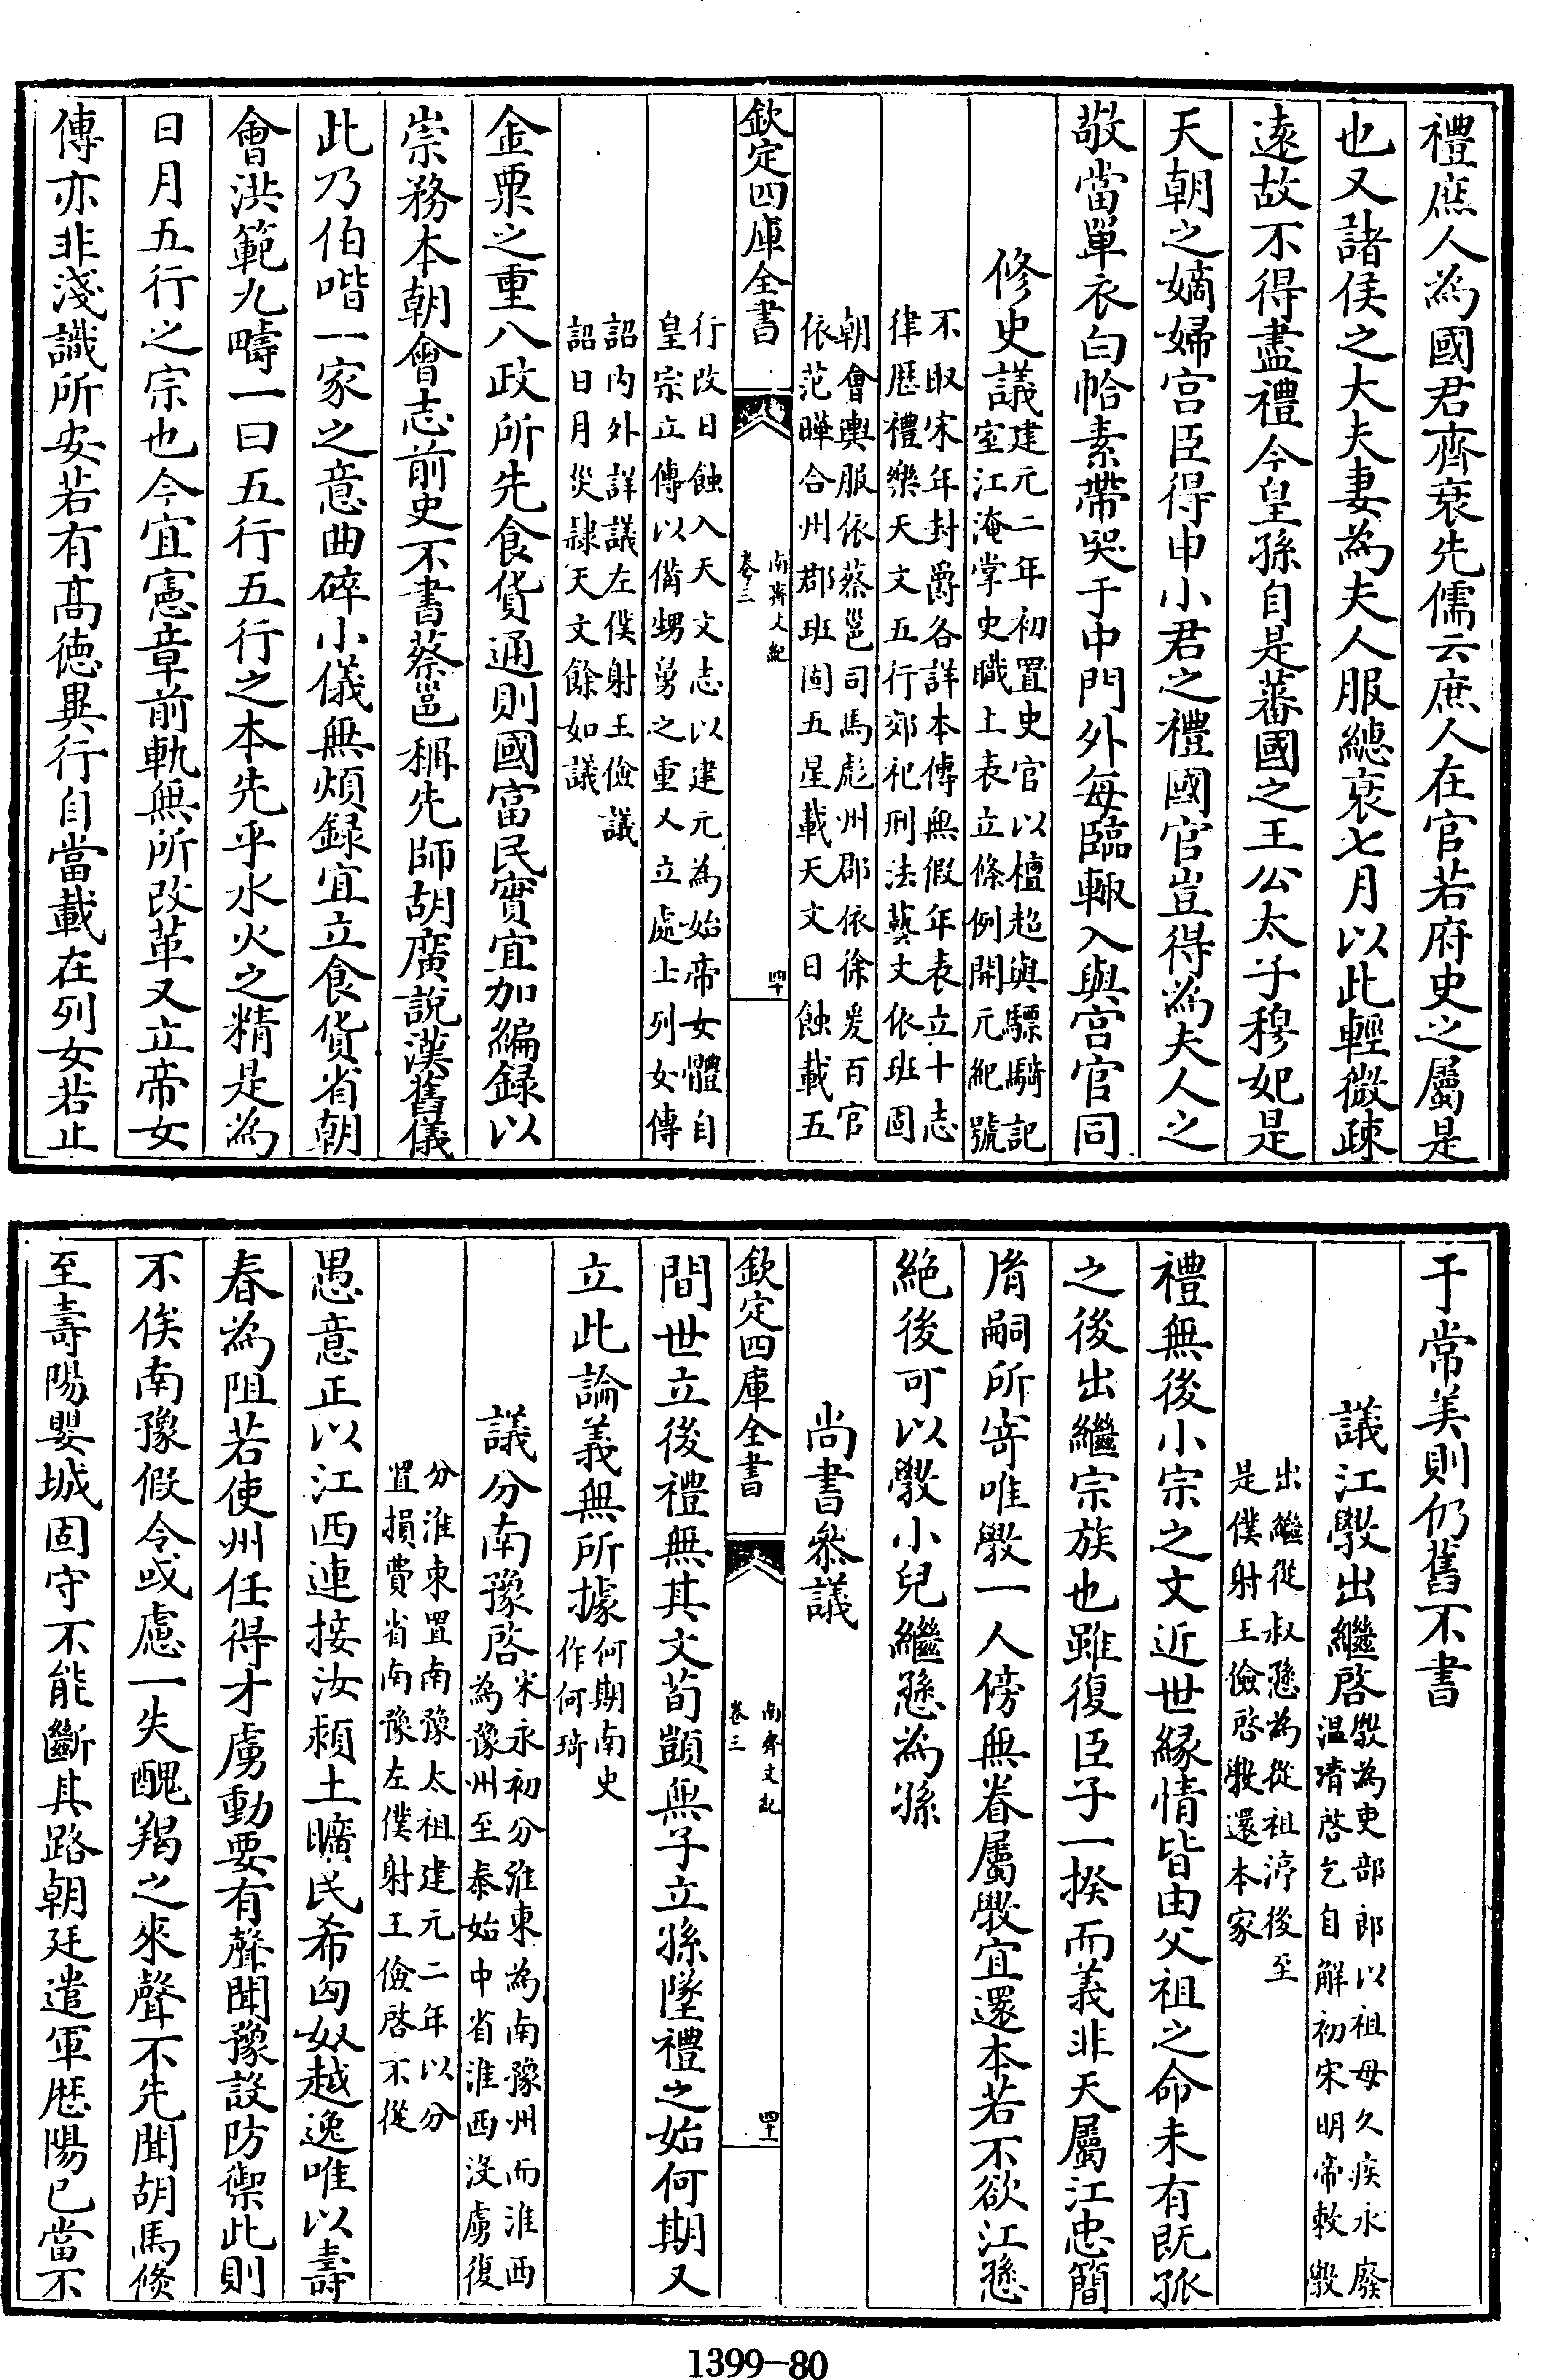 禮庶人為國君齊衰先儒云庶人在官若府史之屬是
也又諸侯之大夫妻為夫人服緦衰七月以此輕微疎
遠故不得盡禮今皇孫自是蕃國之王公太子穆妃是
天朝之嫡婦宫臣得申小君之禮國官豈得為夫人之
敬當單衣白帢素帶哭于中門外每臨輙入與宫官同
修史議建元二年初置史官以檀超與驃騎記
室江淹掌史職上表立條例開元紀號
不取宋年封爵各詳本傳無假年表立十志
律歴禮樂天文五行郊祀刑法藝文依班固
朝會輿服依蔡邕司馬彪州郡依徐爰百官
依范曄合州郡班固五星載天文日蝕載五
欽定四庫全書
南齊文紀
卷三
四十
行改日蝕入天文志以建元為始帝女體自
皇宗立傳以備甥舅之重又立處士列女傳
詔内外詳議左僕射王儉議
詔日月災隷天文餘如議
金粟之重八政所先食貨通則國富民實宜加編録以
崇務本朝會志前史不書蔡邕稱先師胡廣說漢舊儀
此乃伯喈一家之意曲碎小儀無煩録宜立食貨省朝
會洪範九疇一曰五行五行之本先乎水火之精是為
日月五行之宗也今宜憲章前軌無所改革又立帝女
傳亦非淺識所安若有髙徳異行自當載在列女若止
于常美則仍舊不書
議江斆出繼啓斆為吏部郎以祖母久疾永廢
温凊啓乞自解初宋明帝敕斆
出繼從叔愻為從祖淳後至
是僕射王儉啓斆還本家
禮無後小宗之文近世縁情皆由父祖之命未有既孤
之後出繼宗族也雖復臣子一揆而義非天屬江忠簡
胤嗣所寄唯斆一人傍無眷屬斆宜還本若不欲江愻
絶後可以斆小兒繼愻為孫
尚書叅議
欽定四庫全書
南齊文紀
卷三
四十一
間世立後禮無其文荀顗無子立孫墜禮之始何期又
立此論義無所據何期南史
作何琦
議分南豫啓宋永初分淮東為南豫州而淮西
為豫州至泰始中省淮西沒虜復
分淮東置南豫太祖建元二年以分
置損費省南豫左僕射王儉啓不從
愚意正以江西連接汝潁土曠民希匈奴越逸唯以壽
春為阻若使州任得才虜動要有聲聞豫設防禦此則
不俟南豫假令或慮一失醜羯之來聲不先聞胡馬倐
至壽陽嬰城固守不能斷其路朝廷遣軍歴陽已當不
1399—80